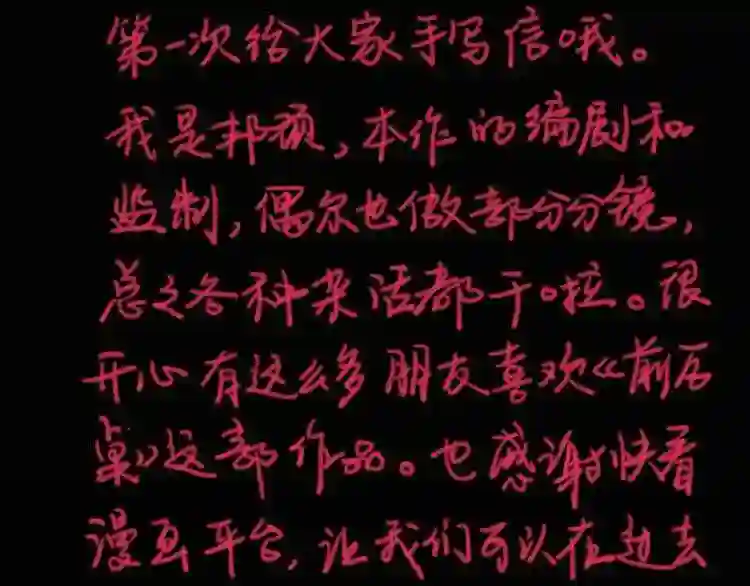 第一次给大家手写信哦。
我是邦颁,本作的编剧和
监制,偶尔也做部分分镜,
总之各种杂活都干啦。很
开心有这么多朋友喜欢《前后
桌》这部作品。也感谢快看
漫画平台,让我们可以在过去